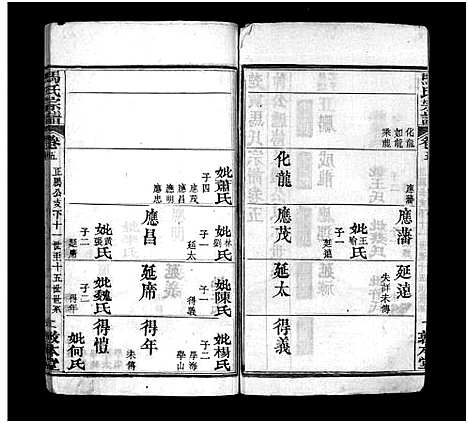 馬氏宗譜
卷五
化龍
如龍
乘龍
應藩
應藩
延遠
失詳未傳
妣喻氏
子一
延遠
化龍
應茂
延太
得義
妣蕭氏
子四
應茂
應昌
應明
應忠
妣林氏
劉
子一
延太
妣陳氏
子一
得義
妣楊氏
子二
學海
學山
應昌
延席
得年
未傳
妣黃氏
張
子一
延席
妣魏氏
子二
得年
得愷
妣何氏
馬氏宗譜
卷五
正鳳公支下十一世至十五世世系
敦本堂